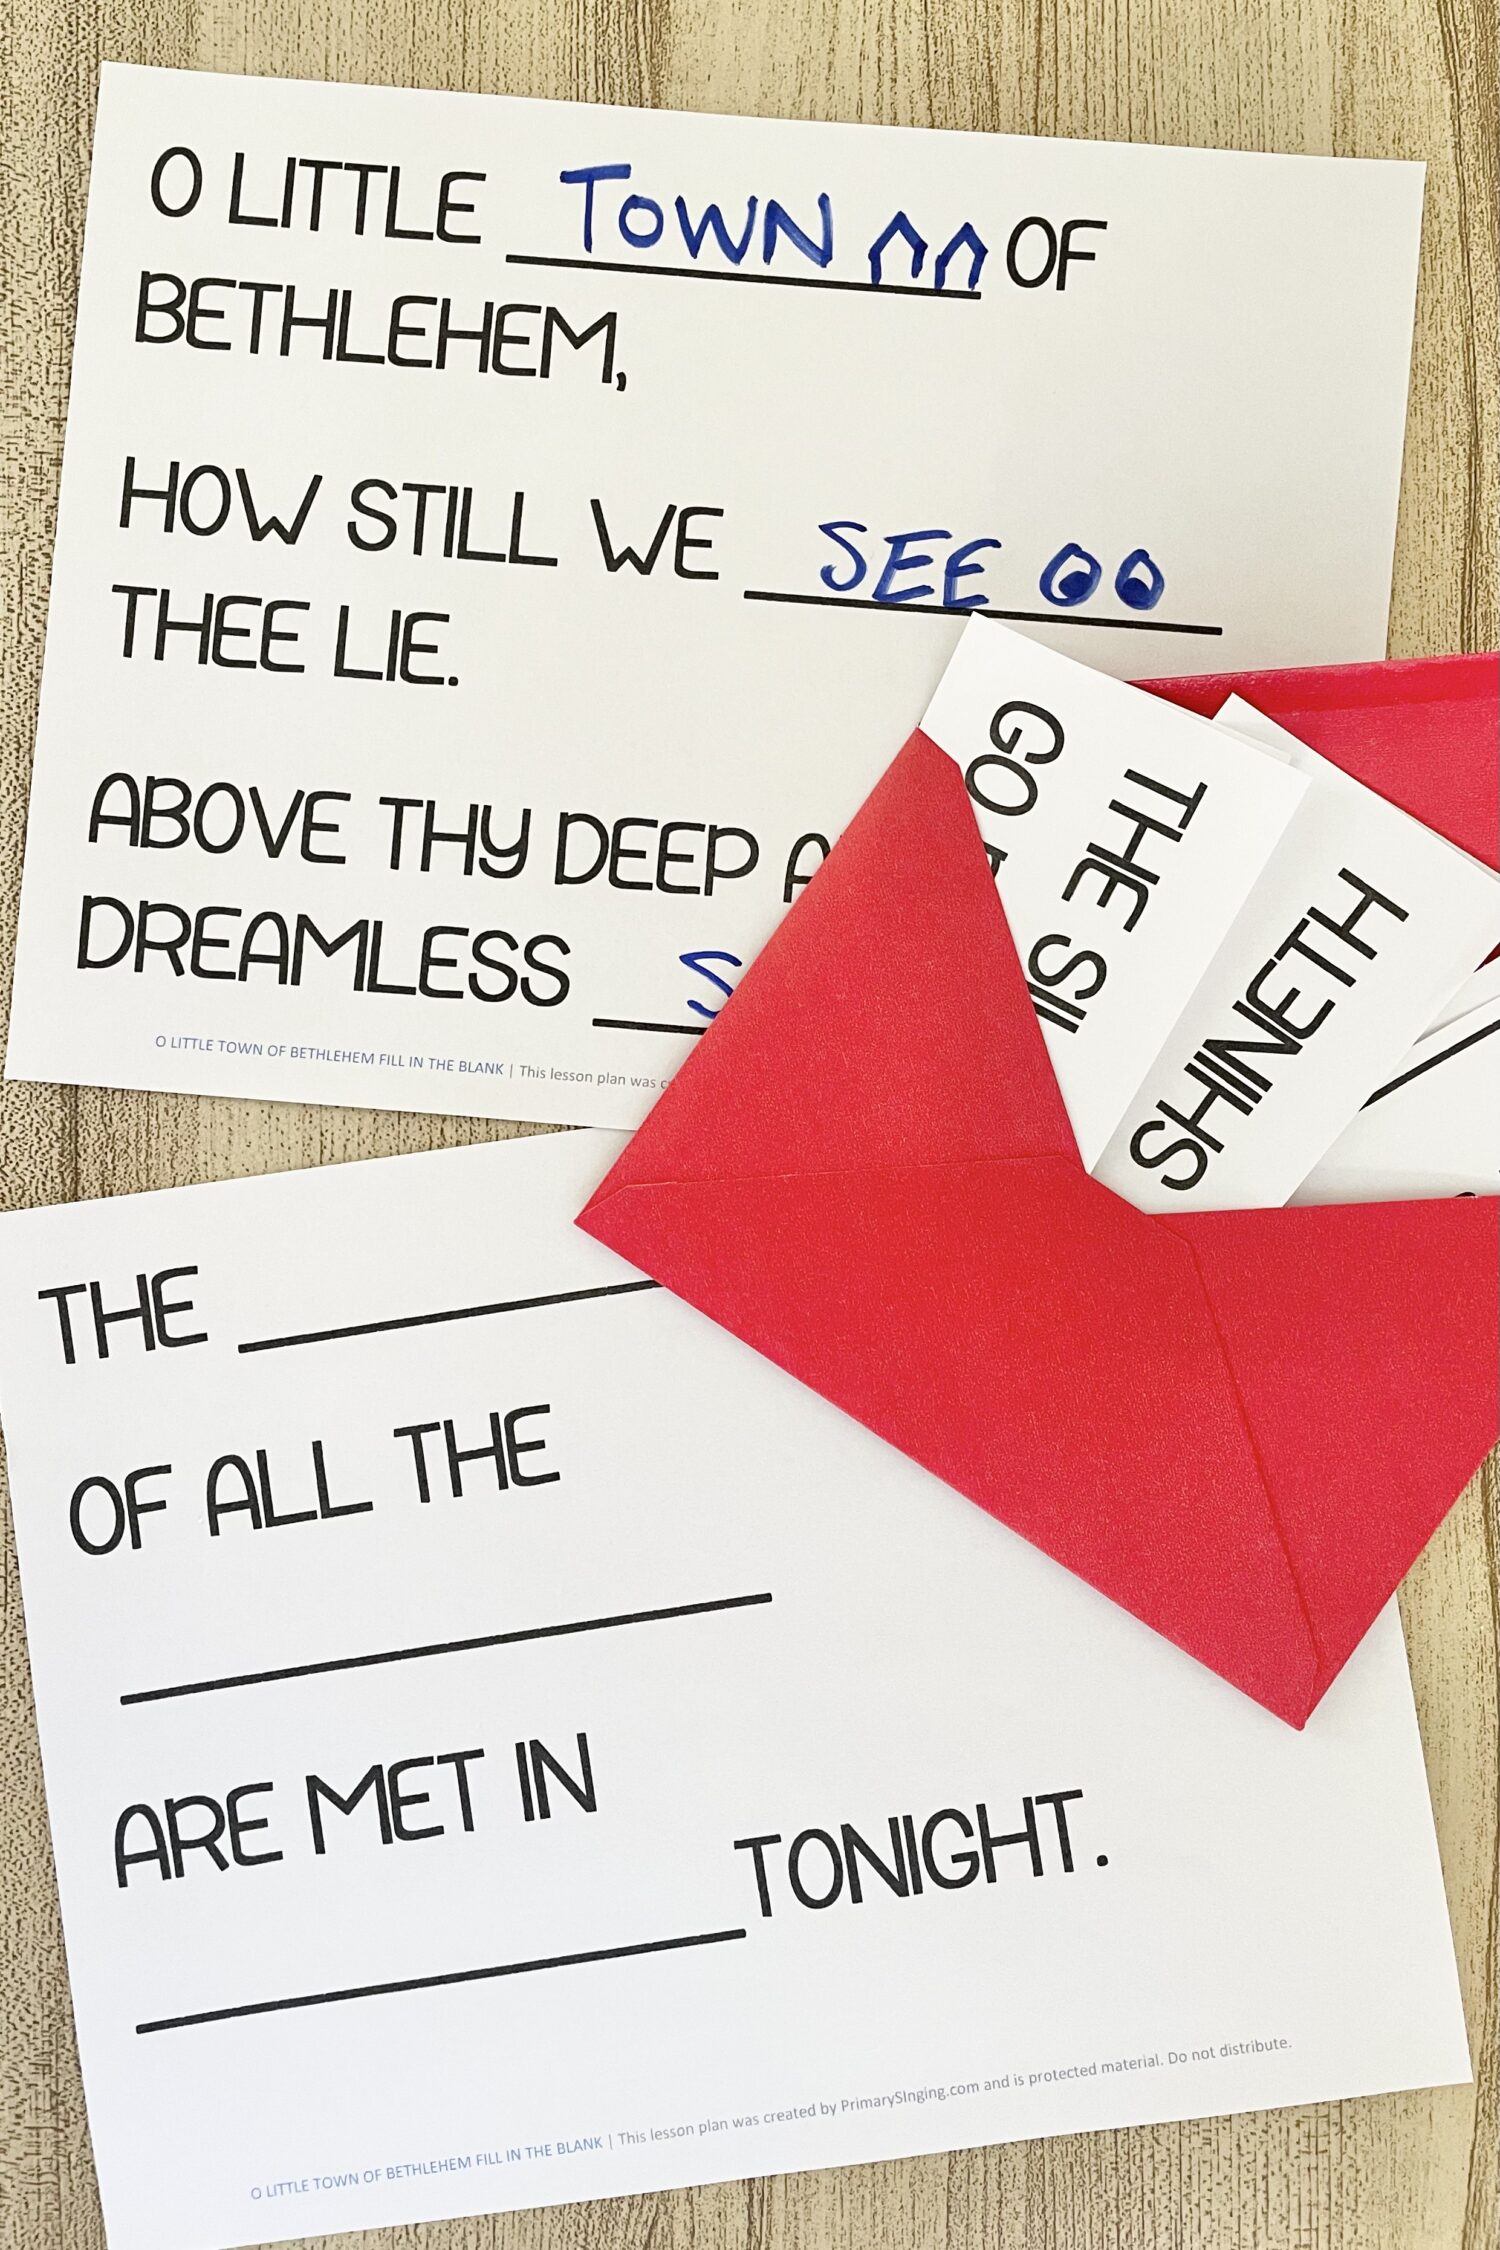 O LITTLE TOWN OF
BETHLEHEM,
HOW STILL WE SEE
THEE LIE.
ABOVE THY DEEP
DREAMLESS
O LITTLE TOWN OF BETHLEHEM FILL IN THE BLANK | This lesson plan was
GO
THE
SHINETH
THE
OF ALL THE
ARE MET IN
TONIGHT.
O LITTLE TOWN OF BETHLEHEM FILL IN THE BLANK | This lesson plan was created by PrimarySInging.com and is protected material. Do not distribute.